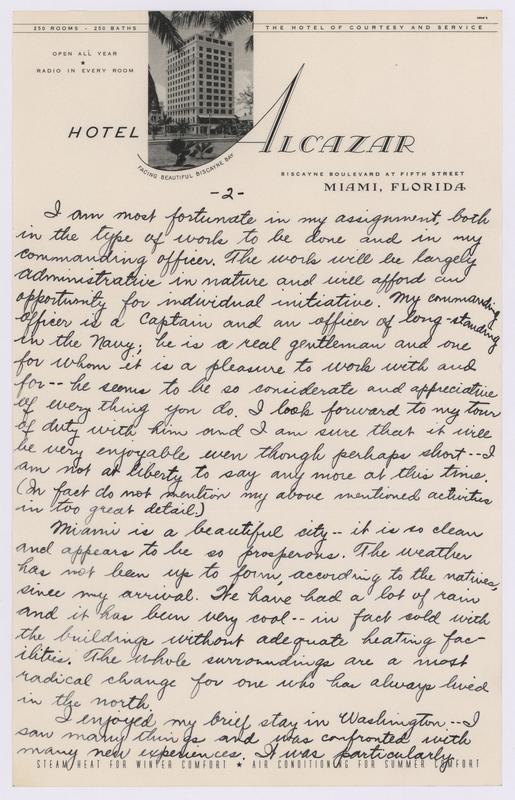 250 ROOMS - 250 BATHS
THE HOTEL OF COURTESY AND SERVICE
OPEN ALL YEAR
★
RADIO IN EVERY ROOM
HOTEL ALCAZAR
FACING BEAUTIFUL BISCAYNE BAY
BISCAYNE BOULEVARD AT FIFTH STREET
MIAMI, FLORIDA
-2-
I am most fortunate in my assignment, both
in the type of work to be done and in my
commanding officer. The work will be largely
administrative in nature and will afford an
opportunity for individual initiative. My commanding
officer is a Captain and an officer of long-standing
in the Navy; he is a real gentleman and one
for whom it is a pleasure to work with and
for -- he seems to be so considerate and appreciative
of every thing you do. I look forward to my tour
of duty with him and I am sure that it will
be very enjoyable even though perhaps short -- I
am not at liberty to say any more at this time.
(In fact do not mention my above mentioned activities
in too great detail.)
Miami is a beautiful city -- it is so clean
and appears to be so prosperous. The weather
has not been up to form, according to the natives,
since my arrival. We have had a lot of rain
and it has been very cool -- in fact sold with
the buildings without adequate heating fac-
ilities. The whole surroundings are a most
radical change for one who has always lived
in the north.
I enjoyed my brief stay in Washington -- I
saw many things and was confronted with
many new experiences. It was particularly
STEAM HEAT FOR WINTER COMFORT ★ AIR CONDITIONING FOR SUMMER COMFORT